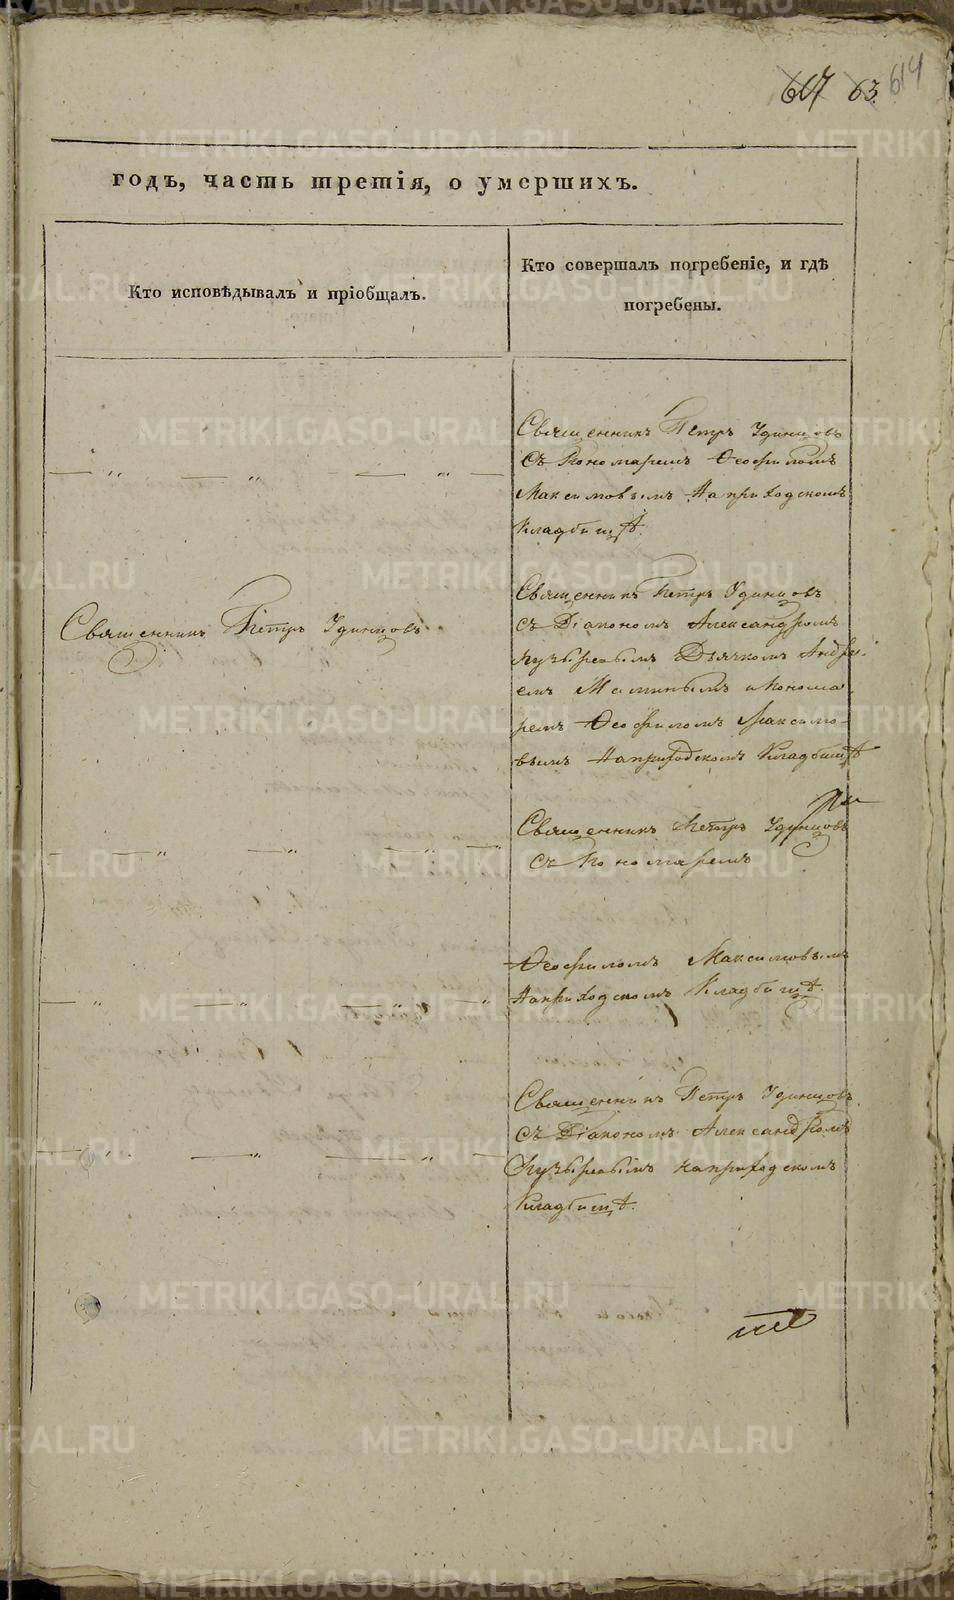 617 63. 614
годъ, часть третія, о умершихъ.
Кто исповѣдывалъ и пріобщалъ.
Кто совершалъ погребеніе, и гдѣ
погребены.
Священникъ Петръ Удинцовъ
съ Пономаремъ Ѳеофиломъ
Максимовымъ на приходскомъ
кладбищѣ.
Священникъ Петръ Удинцовъ
Священникъ Петръ Удинцовъ
съ Діакономъ Александромъ
Пузыревымъ Дьячкомъ Андре-
емъ Маминымъ и Понома
ремъ Ѳеофиломъ Максимо-
вымъ на приходскомъ кладбищѣ
Священникъ Петръ Удинцовъ
съ Пономаремъ
Ѳеофиломъ Максимовымъ
на приходскомъ кладбищѣ.
Священникъ Петръ Удинцовъ
съ Діакономъ Александромъ
Пузыревымъ на приходскомъ
кладбищѣ.
METRIKI.GASO-URAL.RU